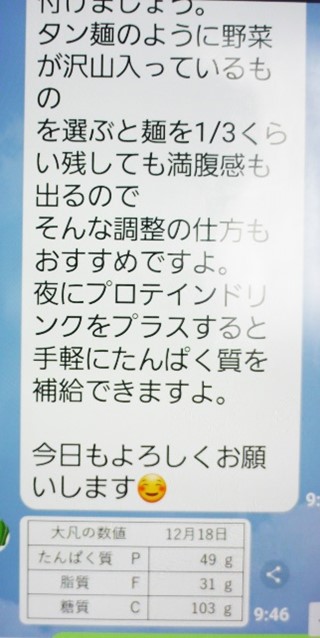 付けましょう。
タン麺のように野菜
が沢山入っているも
の
を選ぶと麺を1/3くら
い残しても満腹感も
出るので
そんな調整の仕方も
おすすめですよ。
夜にプロテインドリ
ンクをプラスすると
手軽にたんぱく質を
補給できますよ。
今日もよろしくお願
いします😊
大凡の数値 12月18日
たんぱく質 P 49 g
脂質 F 31 g
糖質 C 103 g
9:46